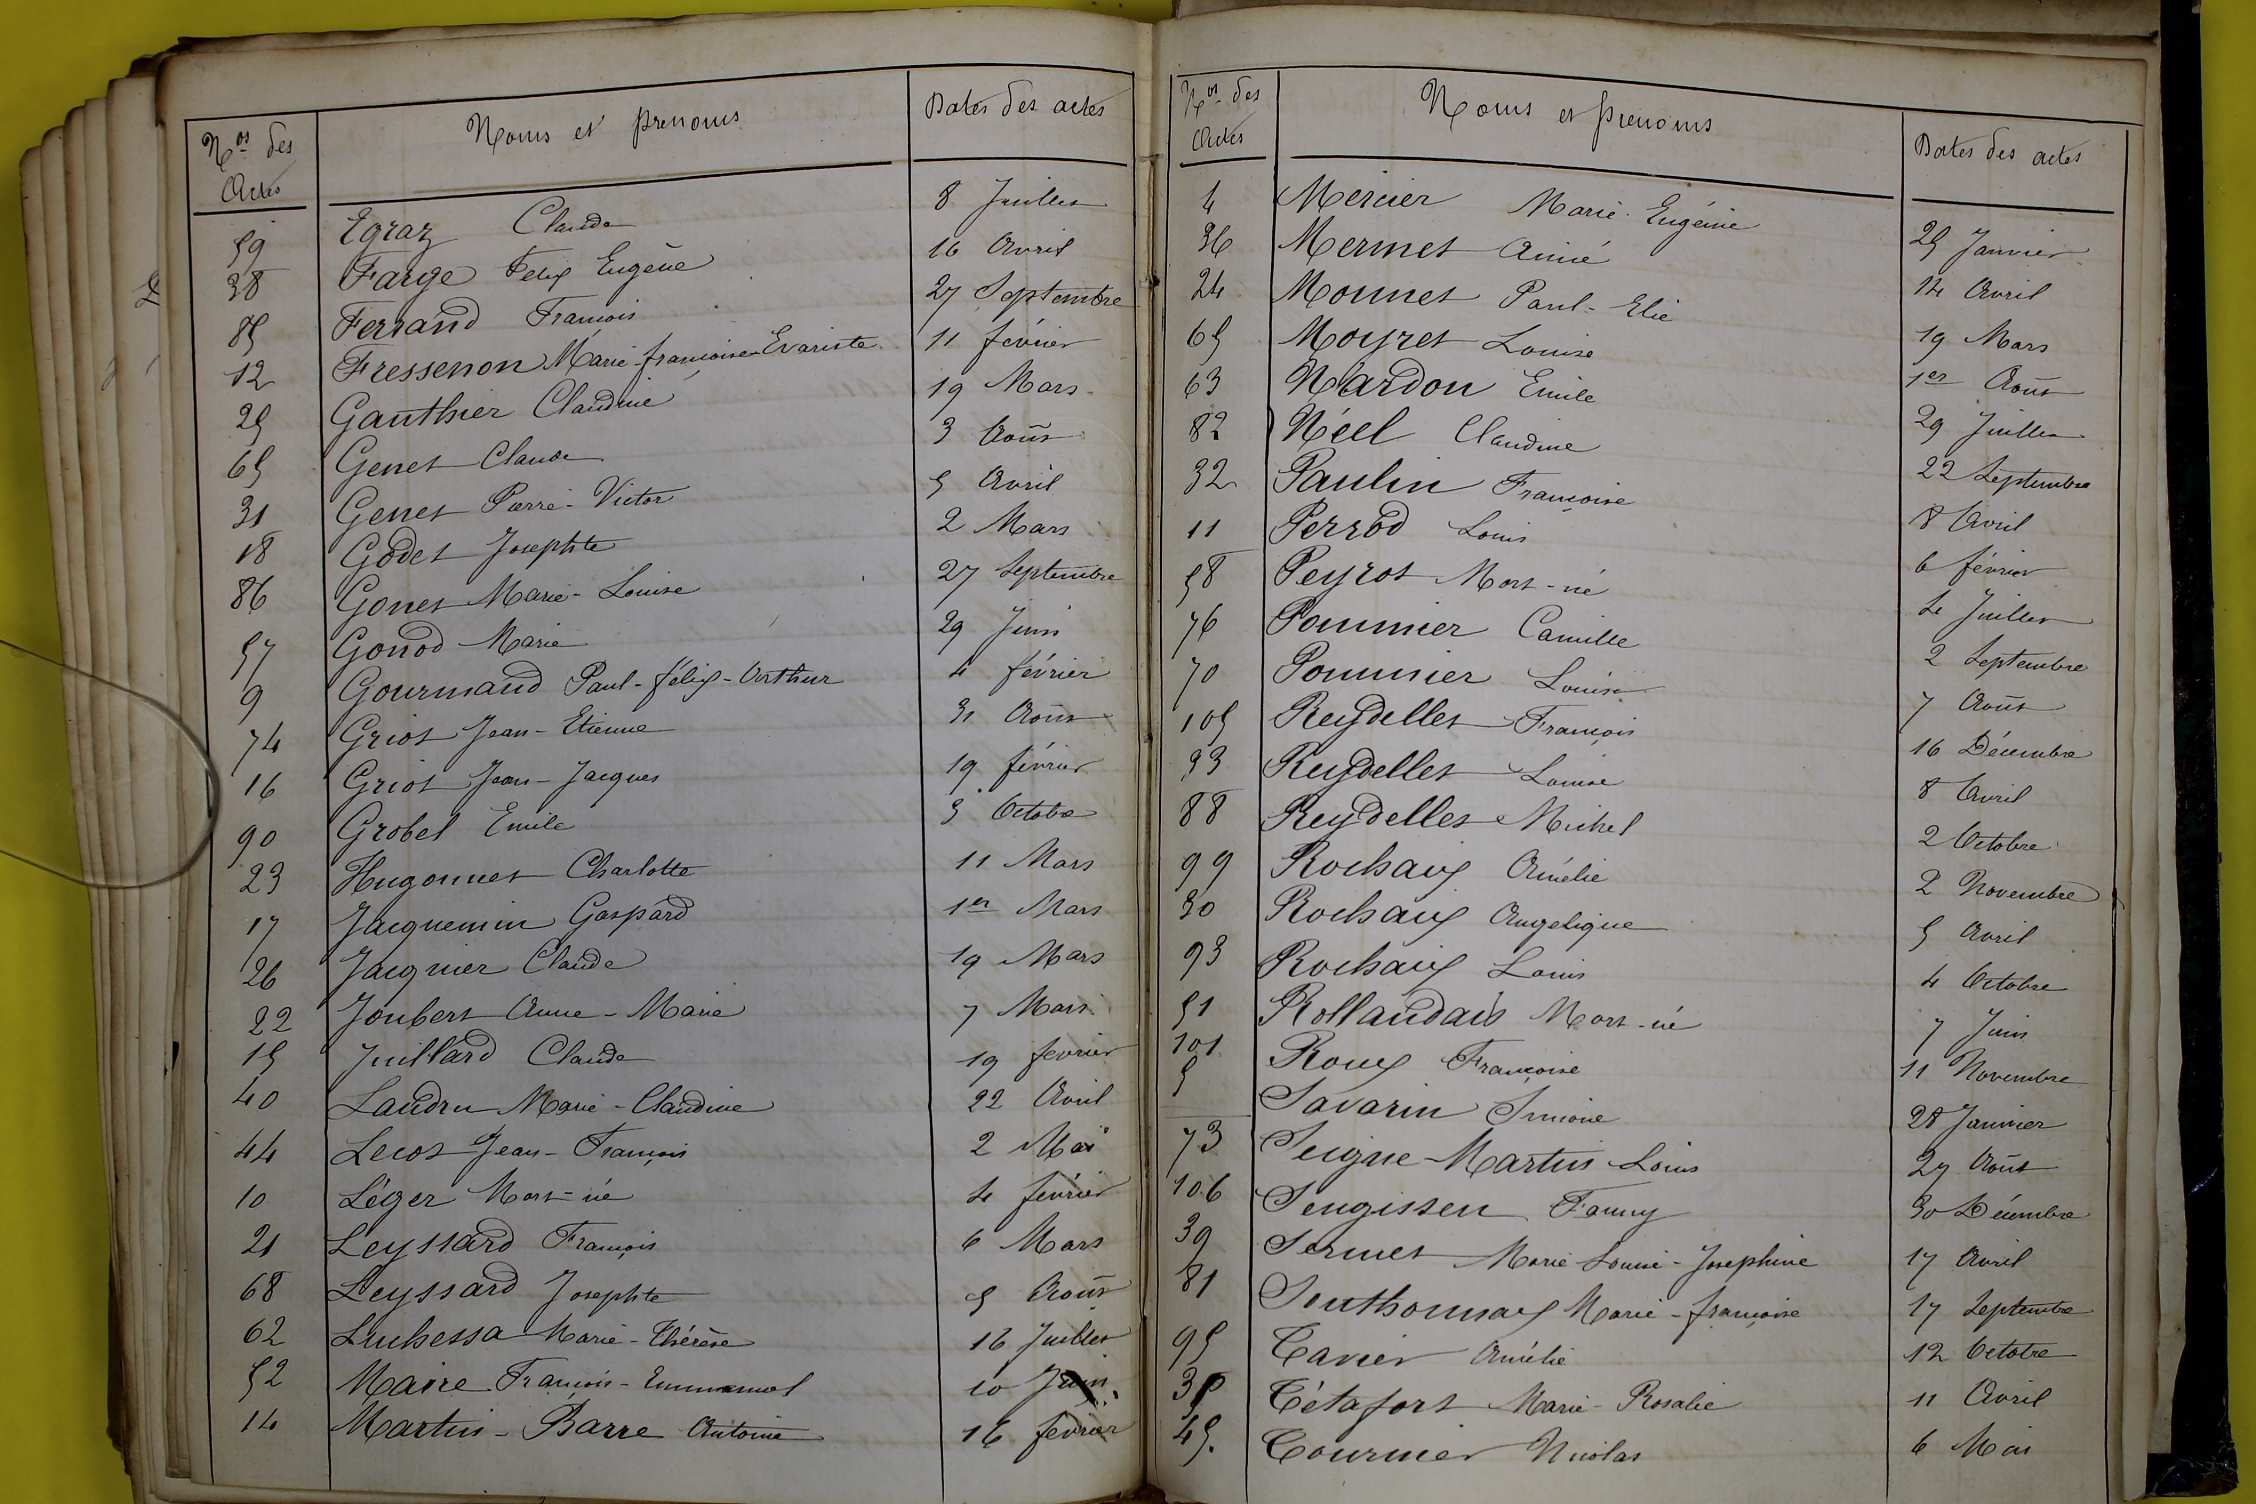 Nos des Actes Noms et prenoms Dates des actes
59 Egraz Claude 8 Juillet
38 Farge Felix Eugène 16 Avril
85 Ferrand François 27 Septembre
12 Fressenon Marie-françoise-Evariste 11 février
25 Gauthier Claudine 19 Mars
65 Genet Claude 3 Août
31 Genet Pierre-Victor 5 Avril
18 Godet Josephte 2 Mars
86 Gonet Marie-Louise 27 Septembre
57 Gonod Marie 29 Juin
9 Gourmand Paul-félix-Arthur 4 février
74 Griot Jean-Etienne 31 Août
16 Griot Jean-Jacques 19 février
90 Grobel Emile 3 Octobre
23 Hugonnet Charlotte 11 Mars
17 Jacquemin Gaspard 1er Mars
26 Jacquier Claude 19 Mars
22 Joubert Anne-Marie 7 Mars
15 Juillard Claude 19 fevrier
40 Landru Marie-Claudine 22 Avril
44 Lecot Jean-François 2 Mai
10 Léger Mort-né 4 fevrier
21 Leyssard François 6 Mars
68 Leyssard Josephte 5 Août
62 Luchessa Marie-Thérèse 16 Juillet
52 Maire François-Emmanuel 10 Juin
14 Martin-Barre Antoine 16 fevrier
Nos des Actes Noms et prenoms Dates des actes
4 Mercier Marie-Eugénie 25 Janvier
36 Mermet Aimé 14 Avril
24 Monnet Paul-Elie 19 Mars
65 Moyret Louise 1er Août
63 Nardon Emile 29 Juillet
82 Néel Claudine 22 Septembre
32 Paulin Françoise 8 Avril
11 Perrod Louis 6 février
58 Peyrot Mort-né 4 Juillet
76 Pommier Camille 2 Septembre
70 Pommier Louise 7 Août
105 Reydellet François 16 Décembre
33 Reydellet Louise 8 Avril
88 Reydellet Michel 2 Octobre
99 Rochaix Amélie 2 Novembre
30 Rochaix Angelique 5 Avril
93 Rochaix Louis 4 Octobre
51 Rollandais Mort-né 7 Juin
101 Roux Françoise 11 Novembre
5 Savarin Simone 28 Janvier
73 Seigne-Martin Louis 29 Août
106 Sengissen Fanny 30 Décembre
39 Sermet Marie Louise-Josephine 17 Avril
81 Southonnax Marie-françoise 17 Septembre
95 Tavier Amélie 12 Octobre
35 Tétafort Marie-Rosalie 11 Avril
45. Tournier Nicolas 6 Mai